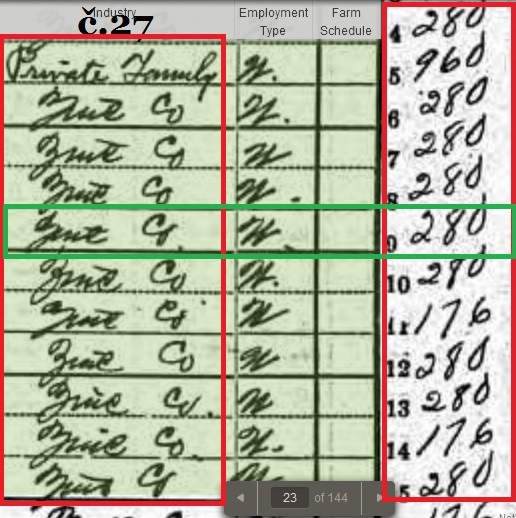 Industry Employment Type Farm Schedule
č.27
4 280
Private Family W. 5 960
Zinc Co W. 6 280
Zinc Co W 7 280
Zinc Co W. 8 280
Zinc Co. W. 9 280
Zinc Co W. 10 280
Zinc Co W 11 176
Zinc Co W 12 280
Zinc Co. W 13 280
Zinc Co. W. 14 176
Zinc Co W 280
23 of 144
176